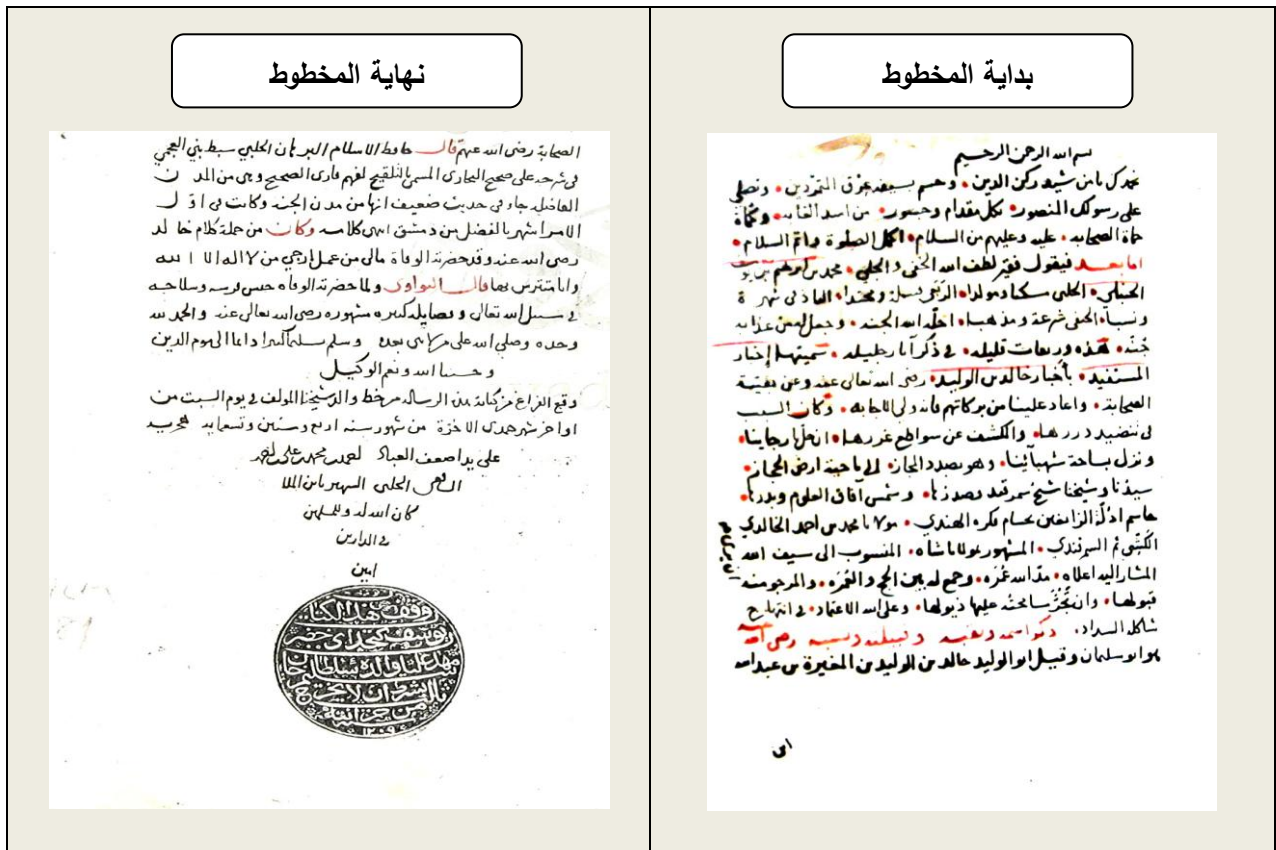 بداية المخطوط
بسم الله الرحمن الرحيم
نحمدك يا من شيد ركن الدين • وحسم بسيفه عرق المتمردين • ونصلي
على رسولك المنصور • بكل مقدام وجسور • من اسد الغابه • وكماة
حماة الصحابه • عليه وعليهم من السلام • اكمل الصلوة واتم السلام •
اما بعد فيقول فقير لطف الله الخفي والجلي • محمد بن ابرهيم بن
الحنبلي • الحلبي مسكنا ومولدا • الربعي قبيلة ومحتدا • القادري شهرة
ونسبا • الحنفي شرعة ومذهبا • احله الله الجنه • وجعل له من عذابه
جنه • هذه وريقات قليله • في ذكر آثار جليله • سميتها إخبار
المستفيد • بأخبار خالد بن الوليد • رضي الله تعالى عنه وعن بقية
الصحابة • واعاد علينا من بركاتهم فانه ولي الاجابه • وكان السبب
في تنضيد دررها • والكشف عن سواطع غررها • ان حل برحابنا •
ونزل بساحة شهبآئنا • وهو بصدد المجاز • الى ناحية ارض الحجاز •
سيدنا وشيخنا شيخ سمرقند وصدرها • وشمس آفاق العلوم وبدرها •
حاسم ادلّة الزائغين بحسام فكره الهندي • مولانا محمد بن احمد الخالدي
الكشي ثم السمرقندي • المشهور بمولانا شاه • المنسوب الى سيف الله
المشار اليه اعلاه • مد الله عمره • وجمع له بين الحج والعمره • والمرجو منه
قبولها • وان تجر سامحته عليها ذيولها • وعلى الله الاعتماد • في انتهاج
شاكلة السداد • ذكر اسمه ولقبه وقبيلته ونسبه رضي الله عنه
هو ابو سليمان وقيل ابو الوليد خالد بن الوليد بن المغيرة بن عبد الله
ابن
نهاية المخطوط
الصحابة رضي الله عنهم قال حافظ الاسلام البرهان الحلبي سبط بني العجمي
في شرحه على صحيح البخاري المسمى بالتلقيح لفهم قارئ الصحيح وهي من المدن
الفاضله جاء في حديث ضعيف انها من مدن الجنه وكانت في اول
الامر اشهر بالفضل من دمشق انتهى كلامه وكان من جملة كلام خالد
رضي الله عنه وقد حضرته الوفاة مالي من عمل ارجي من لا اله الا الله
وانا متترس بها قال النواوي ولما حضرته الوفاه حبس فرسه وسلاحه
في سبيل الله تعالى وفضايله كثيره مشهوره رضي الله تعالى عنه والحمد لله
وحده وصلى الله على من لا نبي بعده وسلم تسليما كثيرا داعما الى يوم الدين
وحسبنا الله ونعم الوكيل
وقع الفراغ من كتابة هذه الرسالة من خط والد شيخنا المولف في يوم السبت من
اواخر شهر جمدى الاخرة من شهور سنه اربع وستين وتسعمايه للتجريد
على يد اضعف العباد احمد بن محمد بن علي بن احمد
الحلبي الشهير بابن الملا
كان الله له وللمسلمين
في الدارين
امين
وقف هذا الكتاب
يوسف كجدي حضر
مهد عليا والدة سلطان
بشرط ان لا يخرج
من خزانته